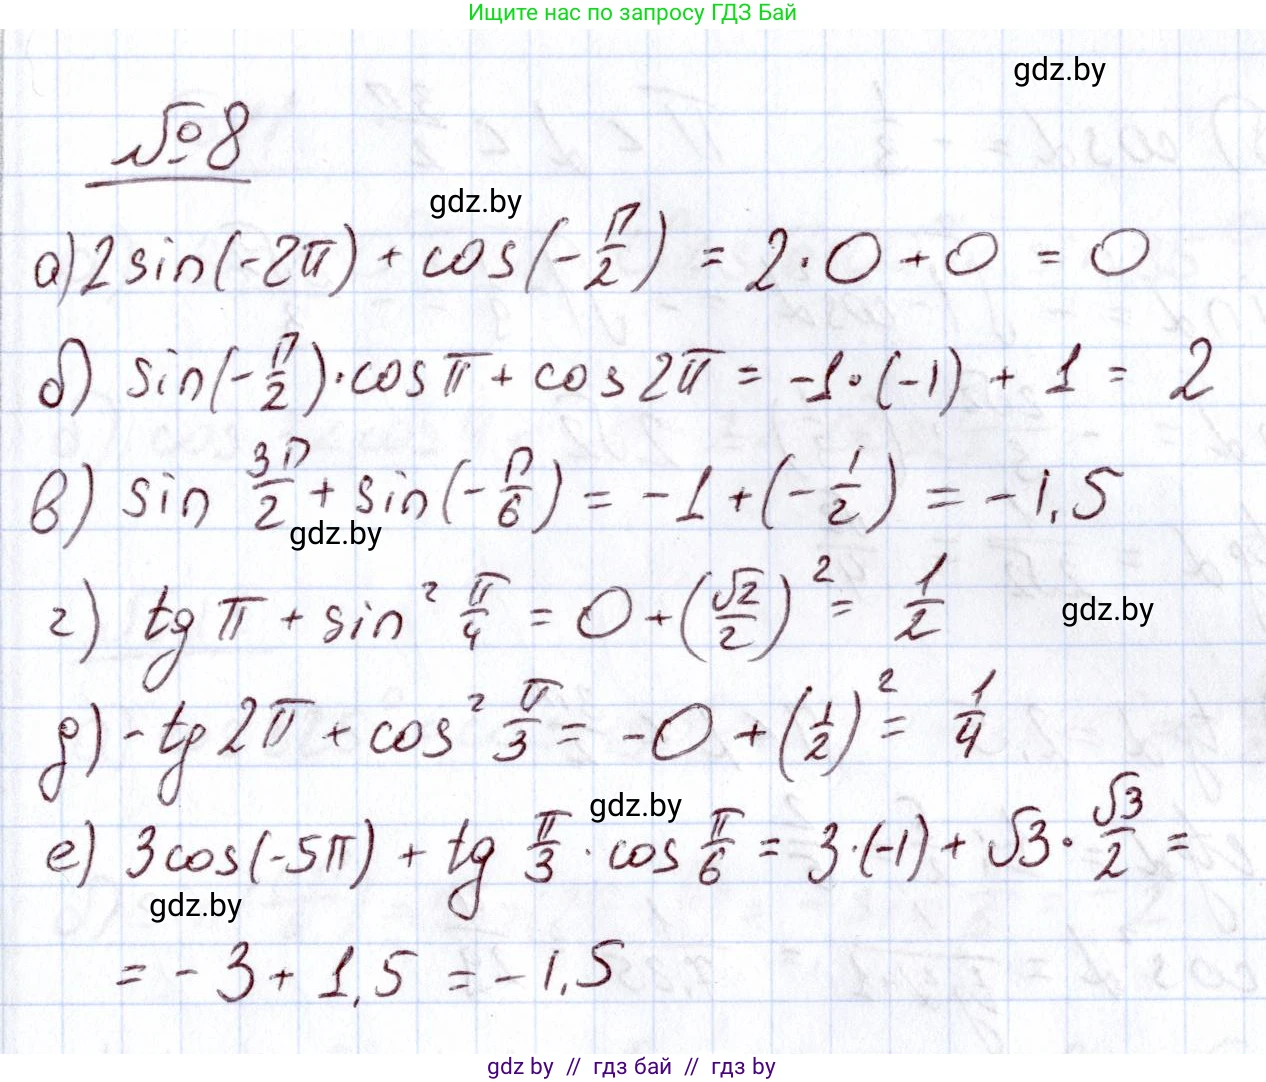 Ищите нас по запросу ГДЗ Бай
gdz.by
№8
gdz.by
а) 2 sin(-2π) + cos(-π/2) = 2·0 + 0 = 0
б) sin(-π/2)·cos π + cos 2π = -1·(-1) + 1 = 2
в) sin 3π/2 + sin(-π/6) = -1 + (-1/2) = -1,5
gdz.by
г) tg π + sin² π/4 = 0 + (√2/2)² = 1/2
gdz.by
д) -tg 2π + cos² π/3 = -0 + (1/2)² = 1/4
gdz.by
е) 3cos(-5π) + tg π/3 · cos π/6 = 3·(-1) + √3·√3/2 =
gdz.by
= -3 + 1,5 = -1,5
gdz.by // гдз бай // гдз by